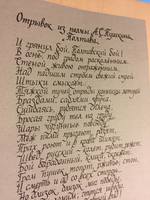 Отрывок из поэмы А.С.Пушкина
„Полтава"
И грянул бой, Полтавский бой!
В огне, под градом раскаленным,
Стеной живою отраженным,
Над падшим строем свежий строй
Штыки смыкает.
Тяжкой тучей отряды конницы летучей
Браздами, саблями звуча,
Сшибаясь, рубятся с плеча.
Бросая груды тел на груду,
Шары чугунные повсюду
Меж ними прыгают, разят,
Прах роют и в крови шипят.
Швед, русский — колет, рубит, режет.
Бой барабанный, клики, скрежет,
Гром пушек, топот, ржанье, стон,
И смерть и ад со всех сторон.